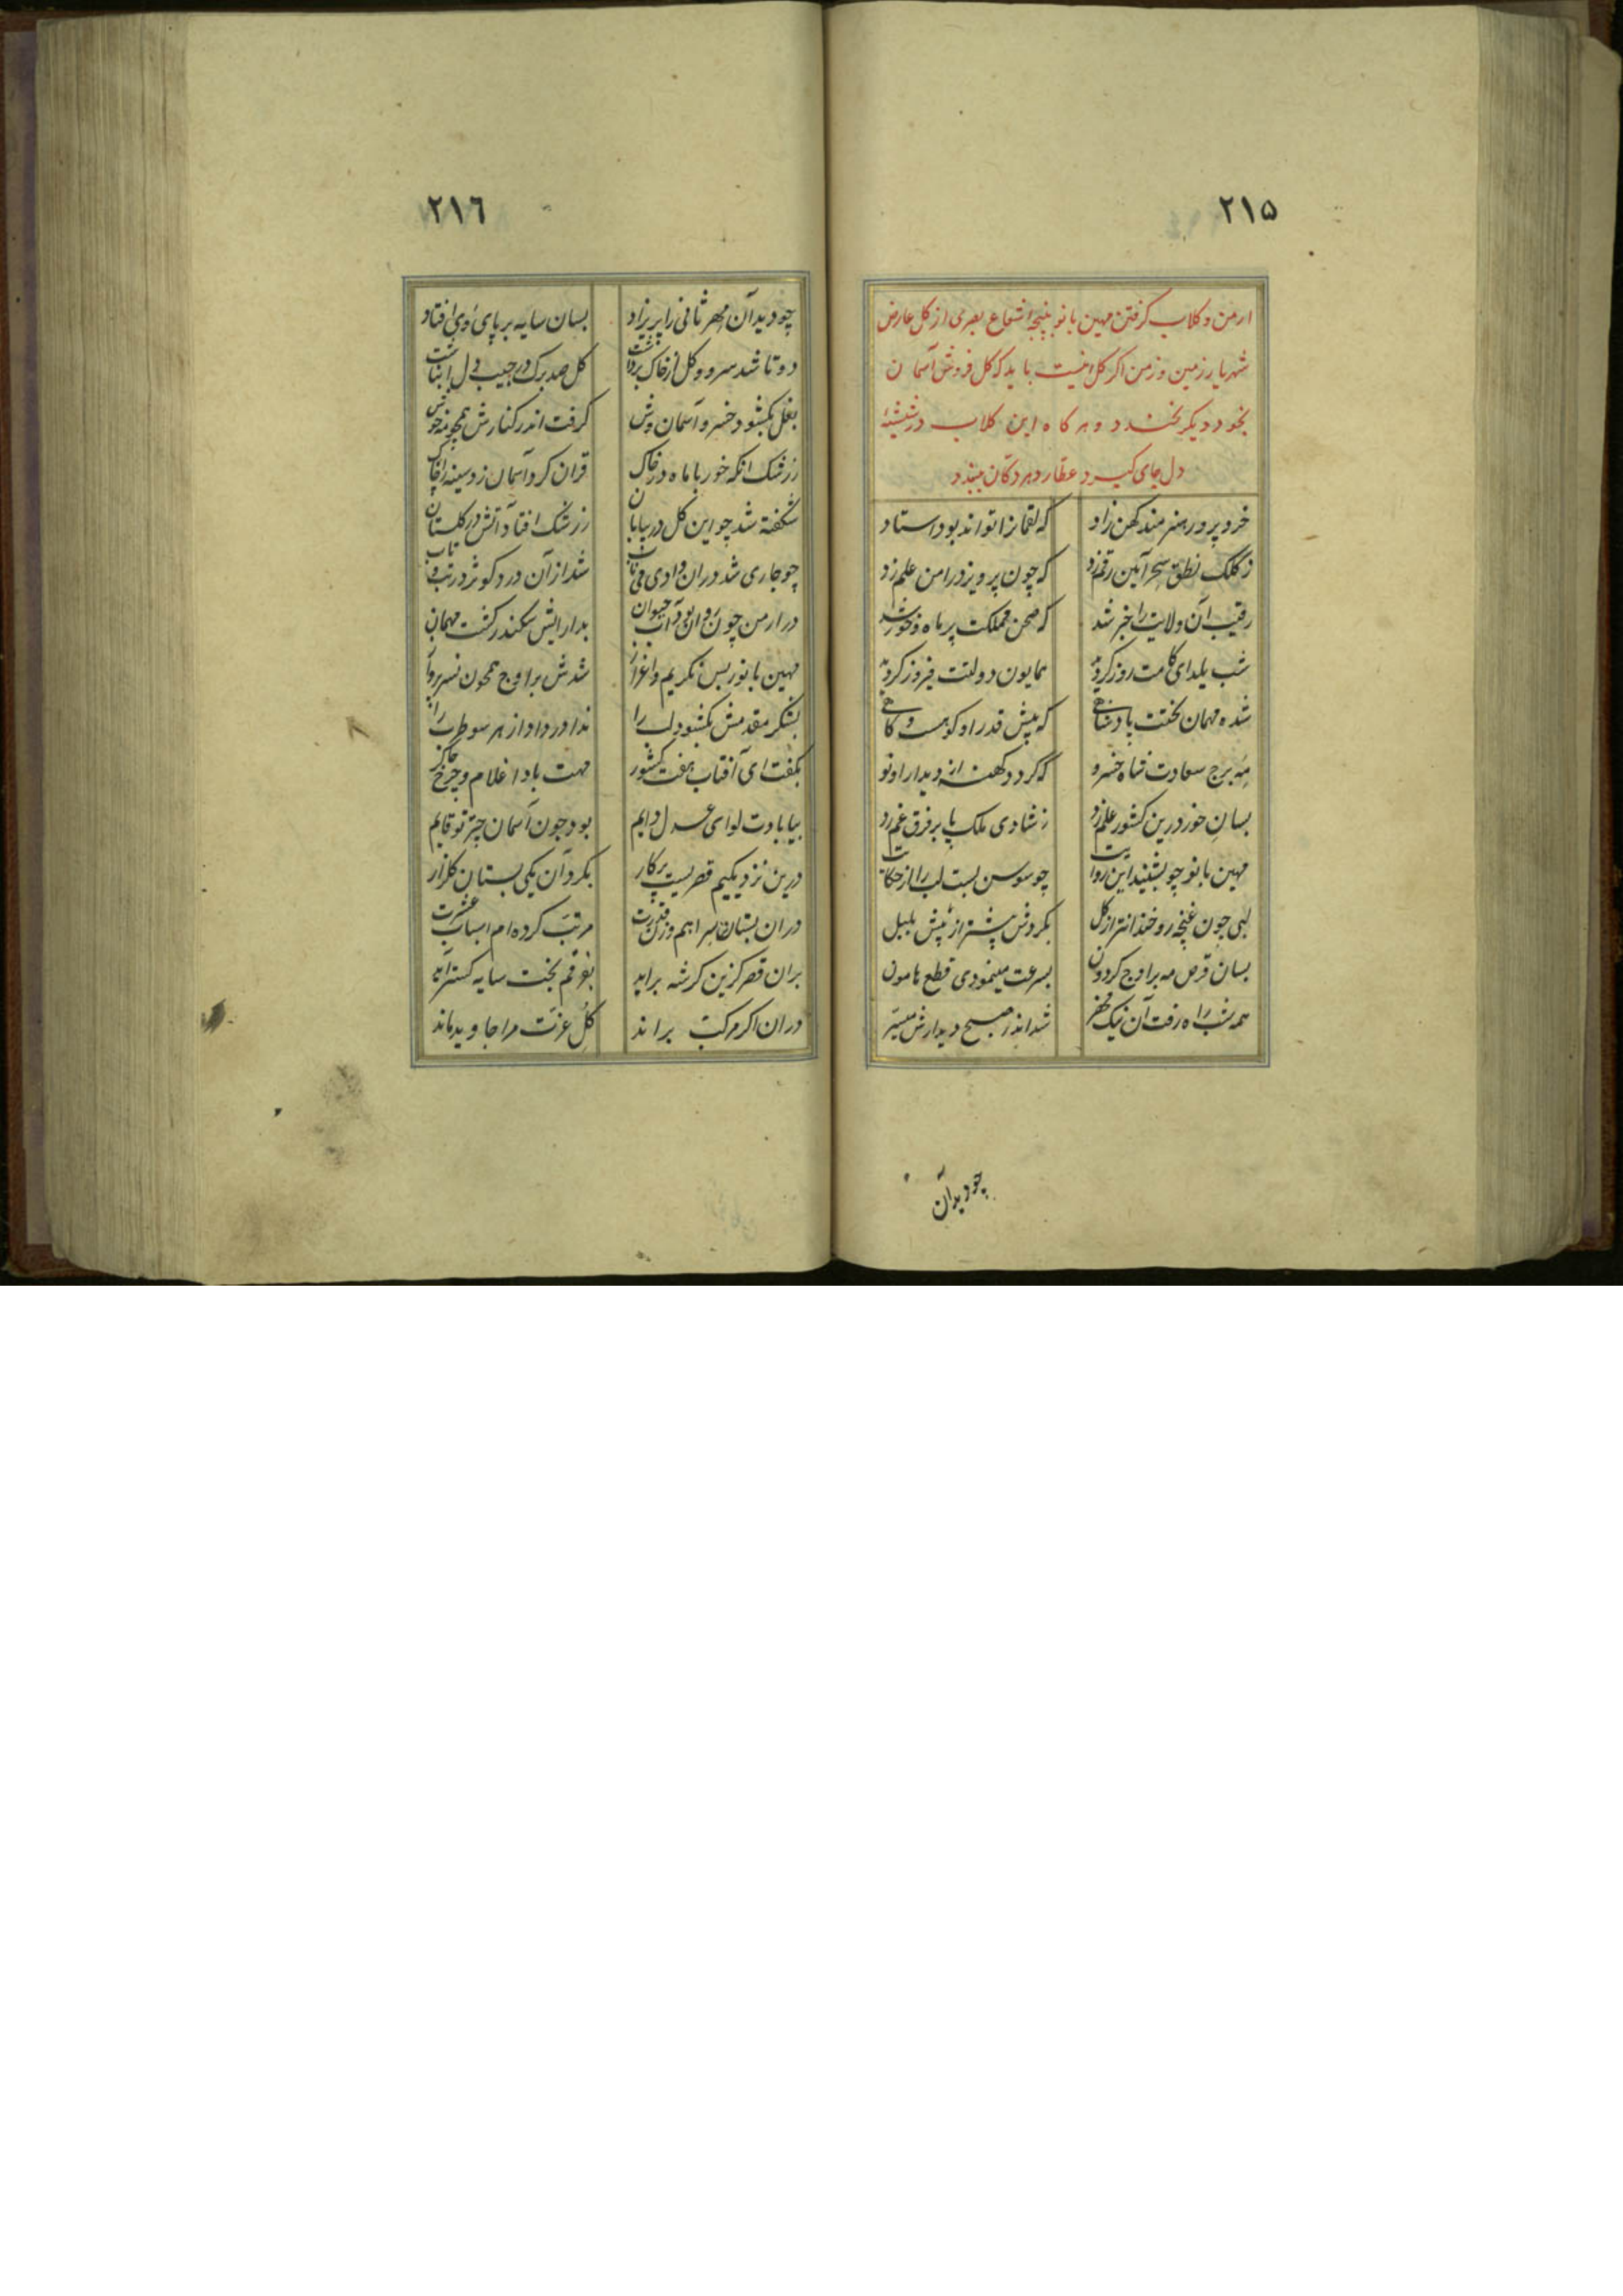 ۲۱۵
ارمن و کلاب کرفتن مهین بانو بپنجه اشعاع بصری از کل عارض
شهریار زمین و زمن اکر کل اینست باید که کل فروش آسمان
بخود دیکر نخندد و هر کاه این کلاب در شیشهٔ
دل جای کیرد عطار دهر دکان ببندد
خرد پرور هنرمند کهن زاد که لقمانرا تواند بود استاد
ز کلک نطق سحر آیین رقم زد که چون پرویز در ارمن علم زد
رقیب آن ولایت را خبر شد که صحن مملکت پر ماه و خور شد
شب یلدای کامت روز کردید همایون دولتت فیروز کردید
شده مهمان تختت پادشاهی که پیش قدر او کوهست و کاهی
مه برج سعادت شاه خسرو که کردد کهنه از دیدار او نو
بسان خور درین کشور علم زد ز شادی ملک پا بر فرق غم زد
مهین بانو چو بشنید این روایت چو سوسن بست لب را از حکایت
لبی چون غنچه رو خندانتر از کل بکردش پیشتر از پیش بلبل
بسان قرص مه بر اوج کردون بسرعت مینمودی قطع هامون
همه شب راه رفت آن نیک محضر شد اندر صبح دیدارش میسر
چو دید آن
۲۱٦
چو دید آن مهر ثانی را پریزاد بسان سایه بر پای وی افتاد
دو تا شد سرو و کل از خاک برداشت کل صد برک در جیب دل انباشت
بغل بکشود خسرو آسمان وش کرفت اندر کنارش همچو مه خوش
ز رشک انکه خور با ماه در خاک قران کرد آسمان زد سینه را چاک
شکفته شد چو این کل در بیابان ز رشک افتاد آتش در کلستان
چو جاری شد دران وادی می ناب شد از آن درد کوثر در تب و تاب
در ارمن چون روان بود آب حیوان بدارایش سکندر کشت مهمان
مهین بانو ز بس تکریم و اعزاز شدش بر اوج همچون نسر پرواز
بشکر مقدمش بکشود لب را ندا در داد از هر سو طرب را
بکفت ای آفتاب هفت کشور مهت بادا غلام و چرخ چاکر
بیا بادت لوای عدل دایم بود چون آسمان چتر تو قایم
درین نزدیکیم قصریست پرکار بکرد آن یکی بستان کلزار
دران بستان سرا هم وزن قدرت مرتب کرده ام اسباب عشرت
بران قصر کزین کر شه براید بفرقم بخت سایه کستر آید
دران اکر مرکب براند کل عزت مرا جاوید ماند